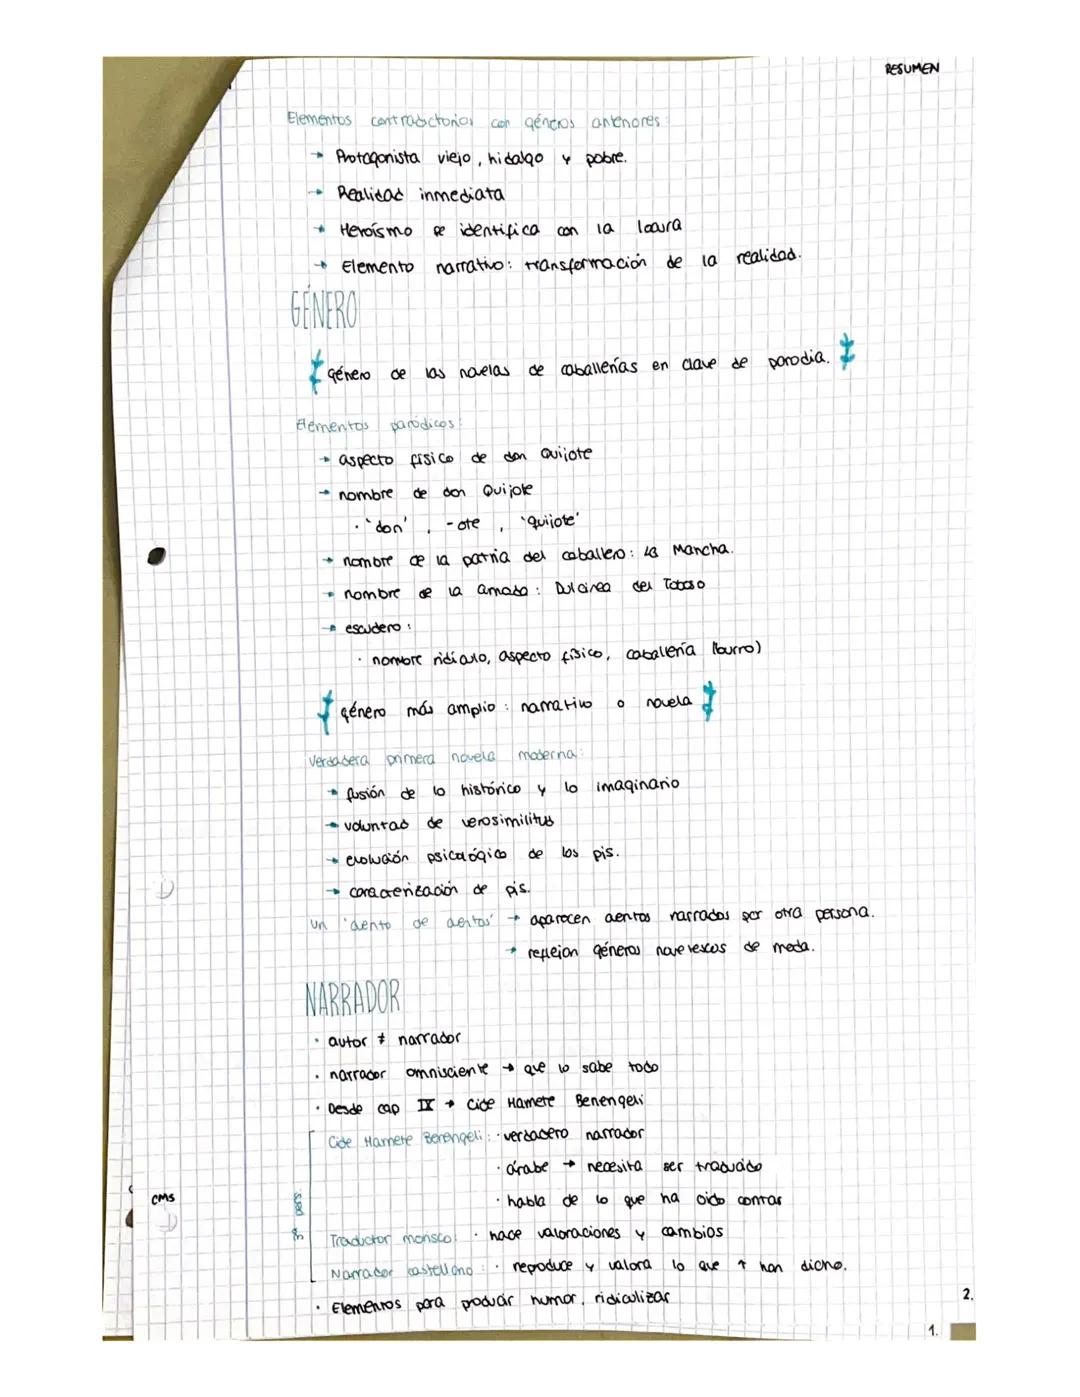 RESUMEN
Elementos contradictorios con géneros anteriores:
→ Protagonista viejo, hidalgo y pobre.
→ Realidad inmediata
→ Heroísmo se identifica con la locura
→ Elemento narrativo: transformación de la realidad.
GÉNERO
género de las novelas de caballerías en clave de parodia.
Elementos paródicos:
→ aspecto físico de don Quijote
→ nombre de don Quijote
· 'don', -ote, 'quijote'
→ nombre de la patria del caballero: La Mancha.
→ nombre de la amada: Dulcinea del Toboso
→ escudero:
· nombre ridículo, aspecto físico, caballería (burro)
género más amplio: narrativo o novela
Verdadera primera novela moderna:
→ fusión de lo histórico y lo imaginario
→ voluntad de verosimilitud
→ evolución psicológico de los pjs.
→ caracterización de pjs.
Un 'cuento de cuentos' → aparecen cuentos narrados por otra persona.
→ reflejan géneros novelescos de moda.
NARRADOR
· autor ≠ narrador
· narrador omnisciente → que lo sabe todo
· Desde cap IX → Cide Hamete Benengeli
Cide Hamete Berengeli: · verdadero narrador
· árabe → necesita ser traducido
· habla de lo que ha oído contar
Traductor morisco: · hace valoraciones y cambios
Narrador castellano: · reproduce y valora lo que ↑ han dicho.
· Elementos para producir humor, ridiculizar
CMS
2.
1.